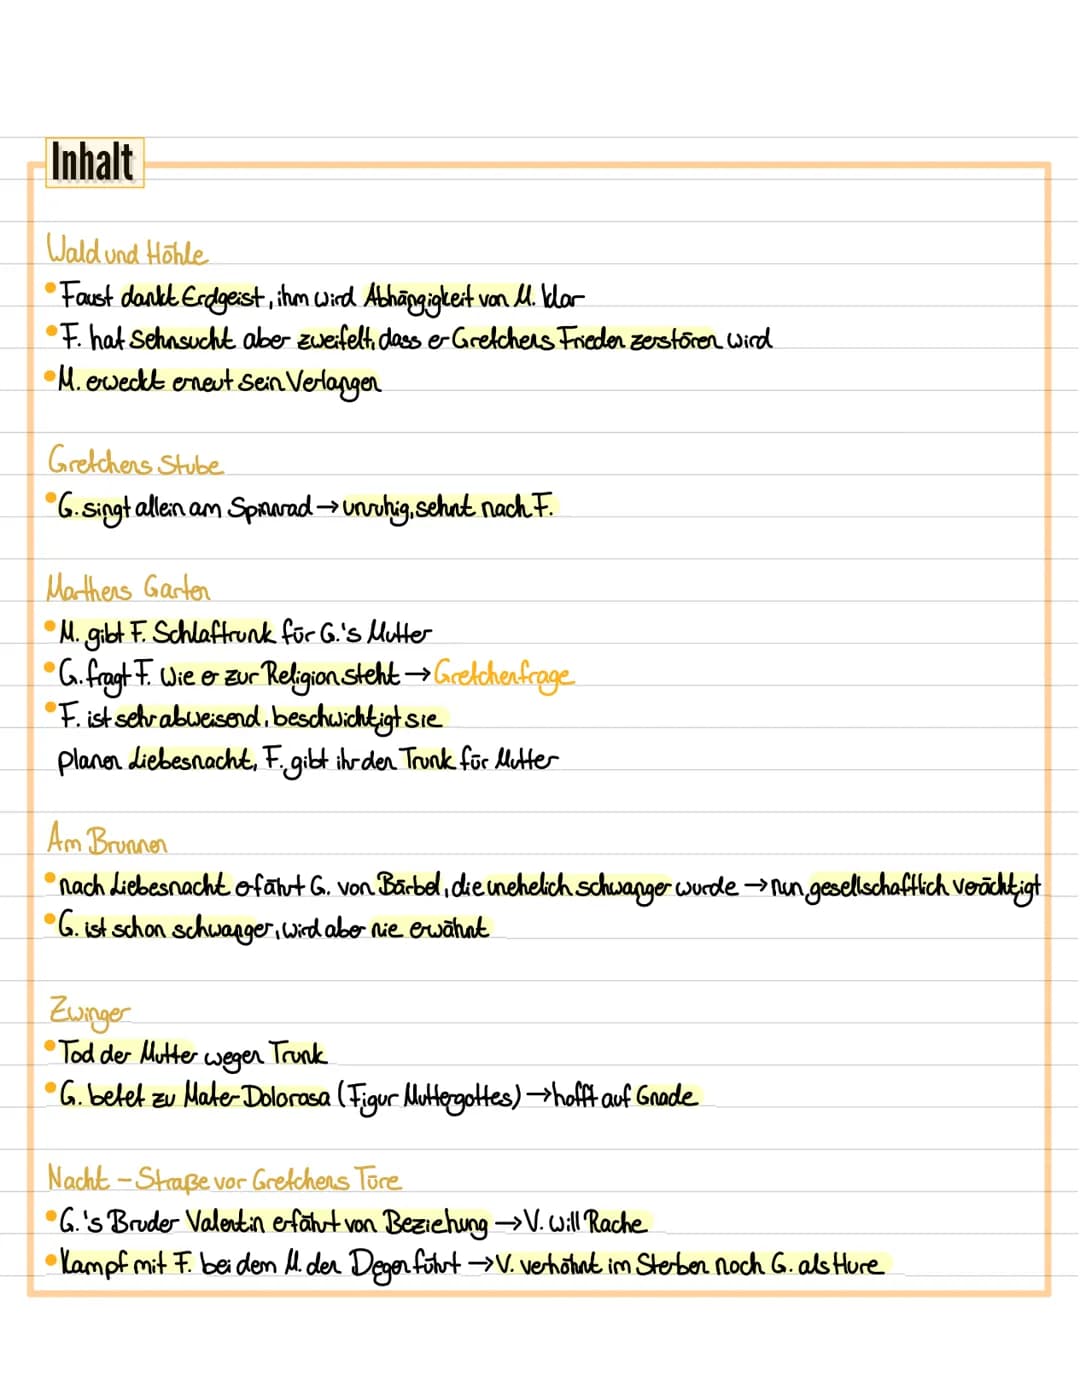 Inhalt
Wald und Höhle
• Faust dankt Erdgeist, ihm wird Abhängigkeit von M. klar
• F. hat Sehnsucht aber zweifelt, dass er Gretchens Frieden zerstören wird
• M. erweckt erneut sein Verlangen
Gretchens Stube
• G. singt allein am Spinnrad → unruhig, sehnt nach F.
Marthens Garten
• M. gibt F. Schlaftrunk für G.'s Mutter
• G. fragt F. wie er zur Religion steht → Gretchenfrage
• F. ist sehr abweisend, beschwichtigt sie
planen Liebesnacht, F. gibt ihr den Trunk für Mutter
Am Brunnen
• nach Liebesnacht erfährt G. von Bärbel, die unehelich schwanger wurde → nun gesellschaftlich verächtigt
• G. ist schon schwanger, wird aber nie erwähnt
Zwinger
• Tod der Mutter wegen Trunk
• G. betet zu Mater Dolorosa (Figur Muttergottes) → hofft auf Gnade
Nacht - Straße vor Gretchens Türe
• G.'s Bruder Valentin erfährt von Beziehung → V. will Rache
• Kampf mit F. bei dem M. den Degen führt → V. verhöhnt im Sterben noch G. als Hure